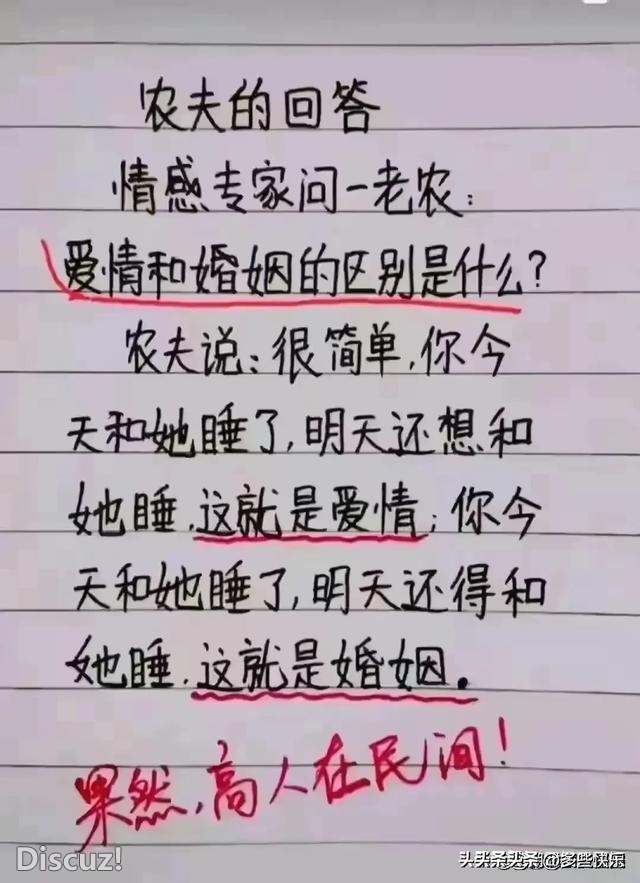 农夫的回答
情感专家问一老农:
爱情和婚姻的区别是什么?
农夫说:很简单,你今
天和她睡了,明天还想和
她睡,这就是爱情;你今
天和她睡了,明天还得和
她睡,这就是婚姻。
果然,高人在民间!
Discuz!